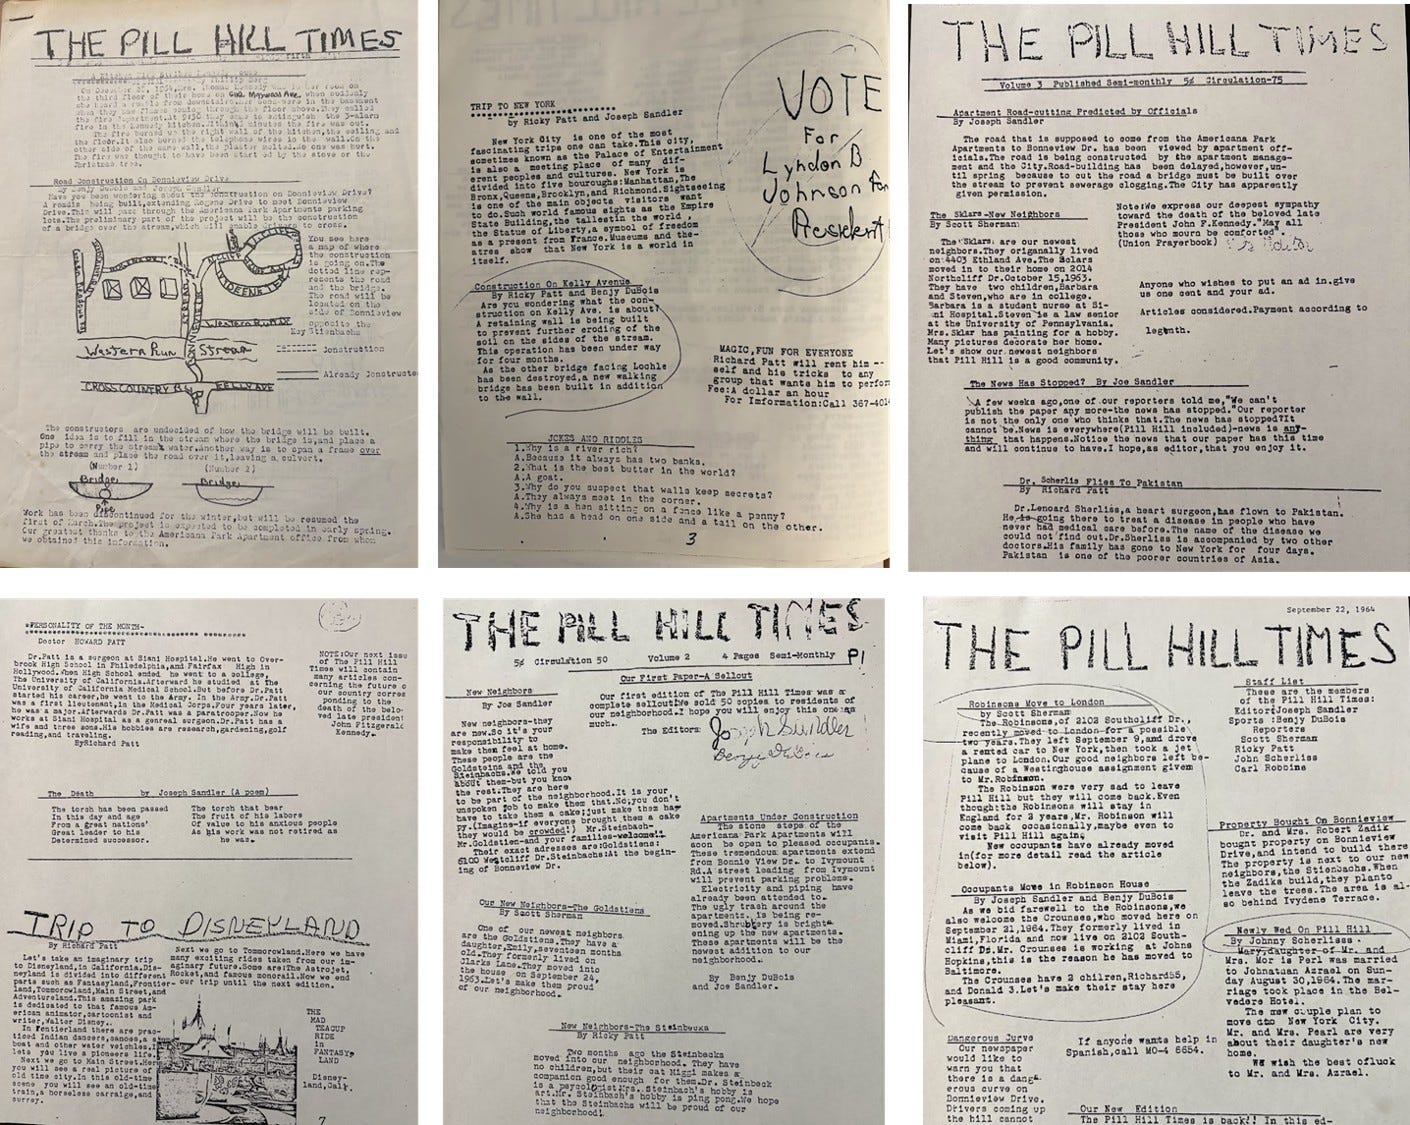 THE PILL HILL TIMES
On December 22, 1964, Mrs. Thomas Kennedy was in her room on
the third floor of their home on 6102 Maywood Ave. when suddenly
Road Construction On Bonnieview Drive
By Benjy DuBois and Joseph Sandler
Have you been wondering about the construction on Bonnieview Drive?
A road is being built, extending Rogene Drive to meet Bonnieview
Drive. This will pass through the Americana Park Apartments parking
lots. The preliminary part of the project will be the construction
of a bridge over the stream, which will enable drivers to cross.
You see here
a map of where
the construction
is going on. The
dotted line rep-
resents the road
and the bridge.
The road will be
located on the
side of Bonnieview
opposite the
Steinbachs
Western Run Dr
Western Run Stream
Construction
Already Constructe
CROSS COUNTRY BV KELLY AVE
The constructors are undecided of how the bridge will be built.
One idea is to fill in the stream where the bridge is, and place a
pipe to carry the stream water. Another way is to span a frame over
the stream and place the road over it, leaving a culvert.
(Number 1) (Number 2)
Bridge Bridge
Pipe
Work has been discontinued for the winter, but will be resumed the
first of March. The project is expected to be completed in early spring.
Our greatest thanks to the Americana Park Apartment office from whom
we obtained this information.
TRIP TO NEW YORK
by Ricky Patt and Joseph Sandler
New York City is one of the most
fascinating trips one can take. This City,
sometimes known as the Palace of Entertainment
is also a meeting place of many dif-
erent peoples and cultures. New York is
divided into five bouroughs: Manhattan, The
Bronx, Queens, Brooklyn, and Richmond. Sightseeing
is one of the main objects visitors want
to do. Such world famous sights as the Empire
State Building, the tallest in the world,
the Statue of Liberty, a symbol of freedom
as a present from France. Museums and the-
atres show that New York is a world in
itself.
VOTE
For
Lyndon B
Johnson for
President
Construction On Kelly Avenue
By Ricky Patt and Benjy DuBois
Are you wondering what the con-
struction on Kelly Ave. is about?
A retaining wall is being built
to prevent further eroding of the
soil on the sides of the stream.
This operation has been under way
for four months.
As the other bridge facing Lochle
has been destroyed, a new walking
bridge has been built in addition
to the wall.
MAGIC, FUN FOR EVERYONE
Richard Patt will rent him --
self and his tricks to any
group that wants him to perform
Fee: A dollar an hour
For Imformation: Call 367-401
JOKES AND RIDDLES
1. Why is a river rich?
A. Because it always has two banks.
2. What is the best butter in the world?
A. A goat.
3. Why do you suspect that walls keep secrets?
A. They always meet in the corner.
4. Why is a hen sitting on a fence like a penny?
A. She has a head on one side and a tail on the other.
3
THE PILL HILL TIMES
Volume 3 Published Semi-monthly 5¢ Circulation-75
Apartment Road-cutting Predicted by Officials
By Joseph Sandler
The road that is supposed to come from the Americana Park
Apartments to Bonneview Dr. has been viewed by apartment off-
icials. The road is being constructed by the apartment manage-
ment and the City. Road-building has been delayed, however, un-
til spring because to cut the road a bridge must be built over
the stream to prevent sewerage clogging. The City has apparently
given permission.
The Sklars-New Neighbors
By Scott Sherman
The Sklars are our newest
neighbors. They origanally lived
on 4403 Ethland Ave. The Sklars
moved in to their home on 2014
Northcliff Dr. October 15, 1963.
They have two children, Barbara
and Steven, who are in college.
Barbara is a student nurse at Si-
ni Hospital. Steven is a law senior
at the University of Pennsylvania.
Mrs. Sklar has painting for a hobby.
Many pictures decorate her home.
Let's show our newest neighbors
that Pill Hill is a good community.
Note: We express our deepest sympathy
toward the death of the beloved late
President John F. Kennedy. "May all
those who mourn be comforted".
(Union Prayerbook) The Editor
Anyone who wishes to put an ad in, give
us one cent and your ad.
Articles considered. Payment according to
legenth.
The News Has Stopped? By Joe Sandler
A few weeks ago, one of our reporters told me, "We can't
publish the paper any more-the news has stopped." Our reporter
is not the only one who thinks that. The news has stopped? It
cannot be. News is everywhere (Pill Hill included)-news is any-
thing that happens. Notice the news that our paper has this time
and will continue to have. I hope, as editor, that you enjoy it.
Dr. Scherlis Flies To Pakistan
By Richard Patt
Dr. Lenoard Sherliss, a heart surgeon, has flown to Pakistan.
He is going there to treat a disease in people who have
never had medical care before. The name of the disease we
could not find out. Dr. Sherliss is accompanied by two other
doctors. His family has gone to New York for four days.
Pakistan is one of the poorer countries of Asia.
PERSONALITY OF THE MONTH-
Doctor HOWARD PATT
Dr. Patt is a surgeon at Siani Hospital. He went to Over-
brook High School in Philadelphia, and Fairfax High in
Hollywood. When High School ended he went to a college,
The University of California. Afterward he studied at The
University of California Medical School. But before Dr. Patt
started his career, he went to the Army. In the Army, Dr. Patt
was a first lieutenant, in the Medical Corps. Four years later,
he was a major. Afterwards Dr. Patt was a paratrooper. Now he
works at Sinai Hospital as a genreal surgeon. Dr. Patt has a
wife and three sons. His hobbies are research, gardening, golf
reading, and traveling.
By Richard Patt
NOTE: Our next issu
of The Pill Hill
Times will contain
many articles con-
cerning the future o
our country corres
ponding to the
death of the belo-
ved late presiden
John Fitzgerald
Kennedy.
The Death by Joseph Sandler (A poem)
The torch has been passed
In this day and age
From a great nations'
Great leader to his
Determined successor.
The torch that bear
The fruit of his labors
Of value to his anxious people
As his work was not retired as
he was.
TRIP TO DISNEYLAND
By Richard Patt
Let's take an imaginary trip
to Disneyland, in California. Dis-
neyland is divided into different
parts such as Fantasyland, Frontier-
land, Tommorowland, Main Street, and
Adventureland. This amazing park
is dedicated to that famous Am-
erican animator, cartoonist and
writer, Walter Disney.
In Fontierland there are prac-
ticed Indian dancers, canoes, a
boat and other water veichles. I
lets you live a pioneers life.
Next we go to Main Street. Here
you will see a real picture of
old time city. In this old-time
scene you will see an old-time
train, a horseless carraige, and
surrey.
Next we go to Tommorowland. Here we have
many exciting rides taken from our im-
aginary future. Some are: The Astrojet,
Rocket, and famous monorail. Now we end
our trip until the next edition.
THE
MAD
TEACUP
RIDE
in
FANTASY,
LAND
Disney-
land, Cal.
7
THE PILL HILL TIMES
5¢ Circulation 50 Volume 2 4 Pages Semi-Monthly P!
Our First Paper-A Sellout
Our first edition of The Pill Hill Times was a
complete sellout. We sold 50 copies to residents of
our neighborhood. I hope you will enjoy this one as
much.
The Editors: Joseph Sandler
Benjy DuBois
New Neighbors
By Joe Sandler
New neighbors-they
are new. So it's your
responsibility to
make them feel at home.
These people are the
Goldsteins and the
Steinbachs. We told you
about them-but you know
the rest. They are here
to be part of the neighborhood. It is your
unspoken job to make them that. No, you don't
have to take them a cake; just make them hap
py. (Imagine-if everyone brought them a cake
they would be crowded!) Mr. Steinbach-
Mr. Goldstien-and your families-welcome!!
Their exact adresses are: Goldstiens:
6100 Westcliff Dr. Steinbachs: At the begin-
ing of Bonneview Dr.
Our New Neighbors-The Goldstiens
By Scott Sherman
One of our newest neighbors
are the Goldstiens. They have a
daughter, Emily, seven months
old. They formenly lived on
Clarks Lane. They moved into
the house on September 24,
1963. Let's make them proud
of our neighborhood.
Apartments Under Construction
The stone steps of the
Americana Park Apartments will
soon be open to pleased occupants.
These tremendous apartments extend
from Bonnie View Dr. to Ivymount
Rd. A street leading from Ivymount
will prevent parking problems.
Electricity and piping have
already been attented to.
The ugly trash around the
apartments, is being re-
moved. Shrubtery is bright-
ening up the new apartments.
These apartments will be the
newest addition to our
neighborhood.
By Benjy DuBois
and Joe Sandler.
New Neighbors-The Steinbecks
By Ricky Patt
Two months ago the Steinbecks
moved into our neighborhood. They have
no children, but their cat Miggi makes a
companion good enough for them. Dr. Steinbeck
is a psycologist. Mrs. Steinbach's hobby is
art. Mr. Steinbach's hobby is ping pong. We hope
that the Steinbachs will be proud of our
neighborhood!
September 22, 1964
THE PILL HILL TIMES
Robinsons Move to London
by Scott Sherman
The Robinsons, of 2102 Southcliff Dr.,
recently moved to London for a possible
two years. They left September 9, and drove
a rented car to New York, then took a jet
plane to London. Our good neighbors left be-
cause of a Westinghouse assignment given
to Mr. Robinson.
The Robinson were very sad to leave
Pill Hill but they will come back. Even
though the Robinsons will stay in
England for 2 years, Mr. Robinson will
come back occasionally, maybe even to
visit Pill Hill again.
New occupants have already moved
in (for more detail read the article
below).
Occupants Move in Robinson House
By Joseph Sandler and Benjy DuBois
As we bid farewell to the Robinsons, we
also welcome the Crounses, who moved here on
September 21, 1964. They formerly lived in
Miami, Florida and now live on 2102 South-
cliff Dr. Mr. Crounses is working at Johns
Hopkins, this is the reason he has moved to
Baltimore.
The Crounses have 2 chilren, Richard 5½,
and Donald 3. Let's make their stay here
pleasant.
Dangerous Jurve
Our newspaper
would like to
warn you that
there is a dang-
erous curve on
Bonnieview Drive.
Drivers coming up
the hill cannot
If anyone wants help in
Spanish, call MO-4 6654.
Our New Edition
The Pill Hill Times is back!! In this ed-
Staff List
These are the members
of the Pill Hill Times:
Editor: Joseph Sandler
Sports: Benjy DuBois
Reporters
Scott Sherman
Ricky Patt
John Scherliss
Carl Robbins
Property Bought On Bonnieview
Dr. and Mrs. Robert Zadik
bought property on Bonnieview
Drive, and intend to build there
The property is next to our new
neighbors, the Stienbachs. When
the Zadiks build, they planto
leave the trees. The area is al-
so behind Ivydene Terrace.
Newly Wed On Pill Hill
By Johnny Scherlisss.
Mary, daughter of Mr. and
Mrs. Mor is Perl was married
to Johnatuan Azrael on Sun-
day August 30, 1964. The mar-
riage took place in the Bel-
vedere Hotel.
The new couple plan to
move to New York City.
Mr. and Mrs. Pearl are very
about their daughter's new
home.
We wish the best of luck
to Mr. and Mrs. Azrael.